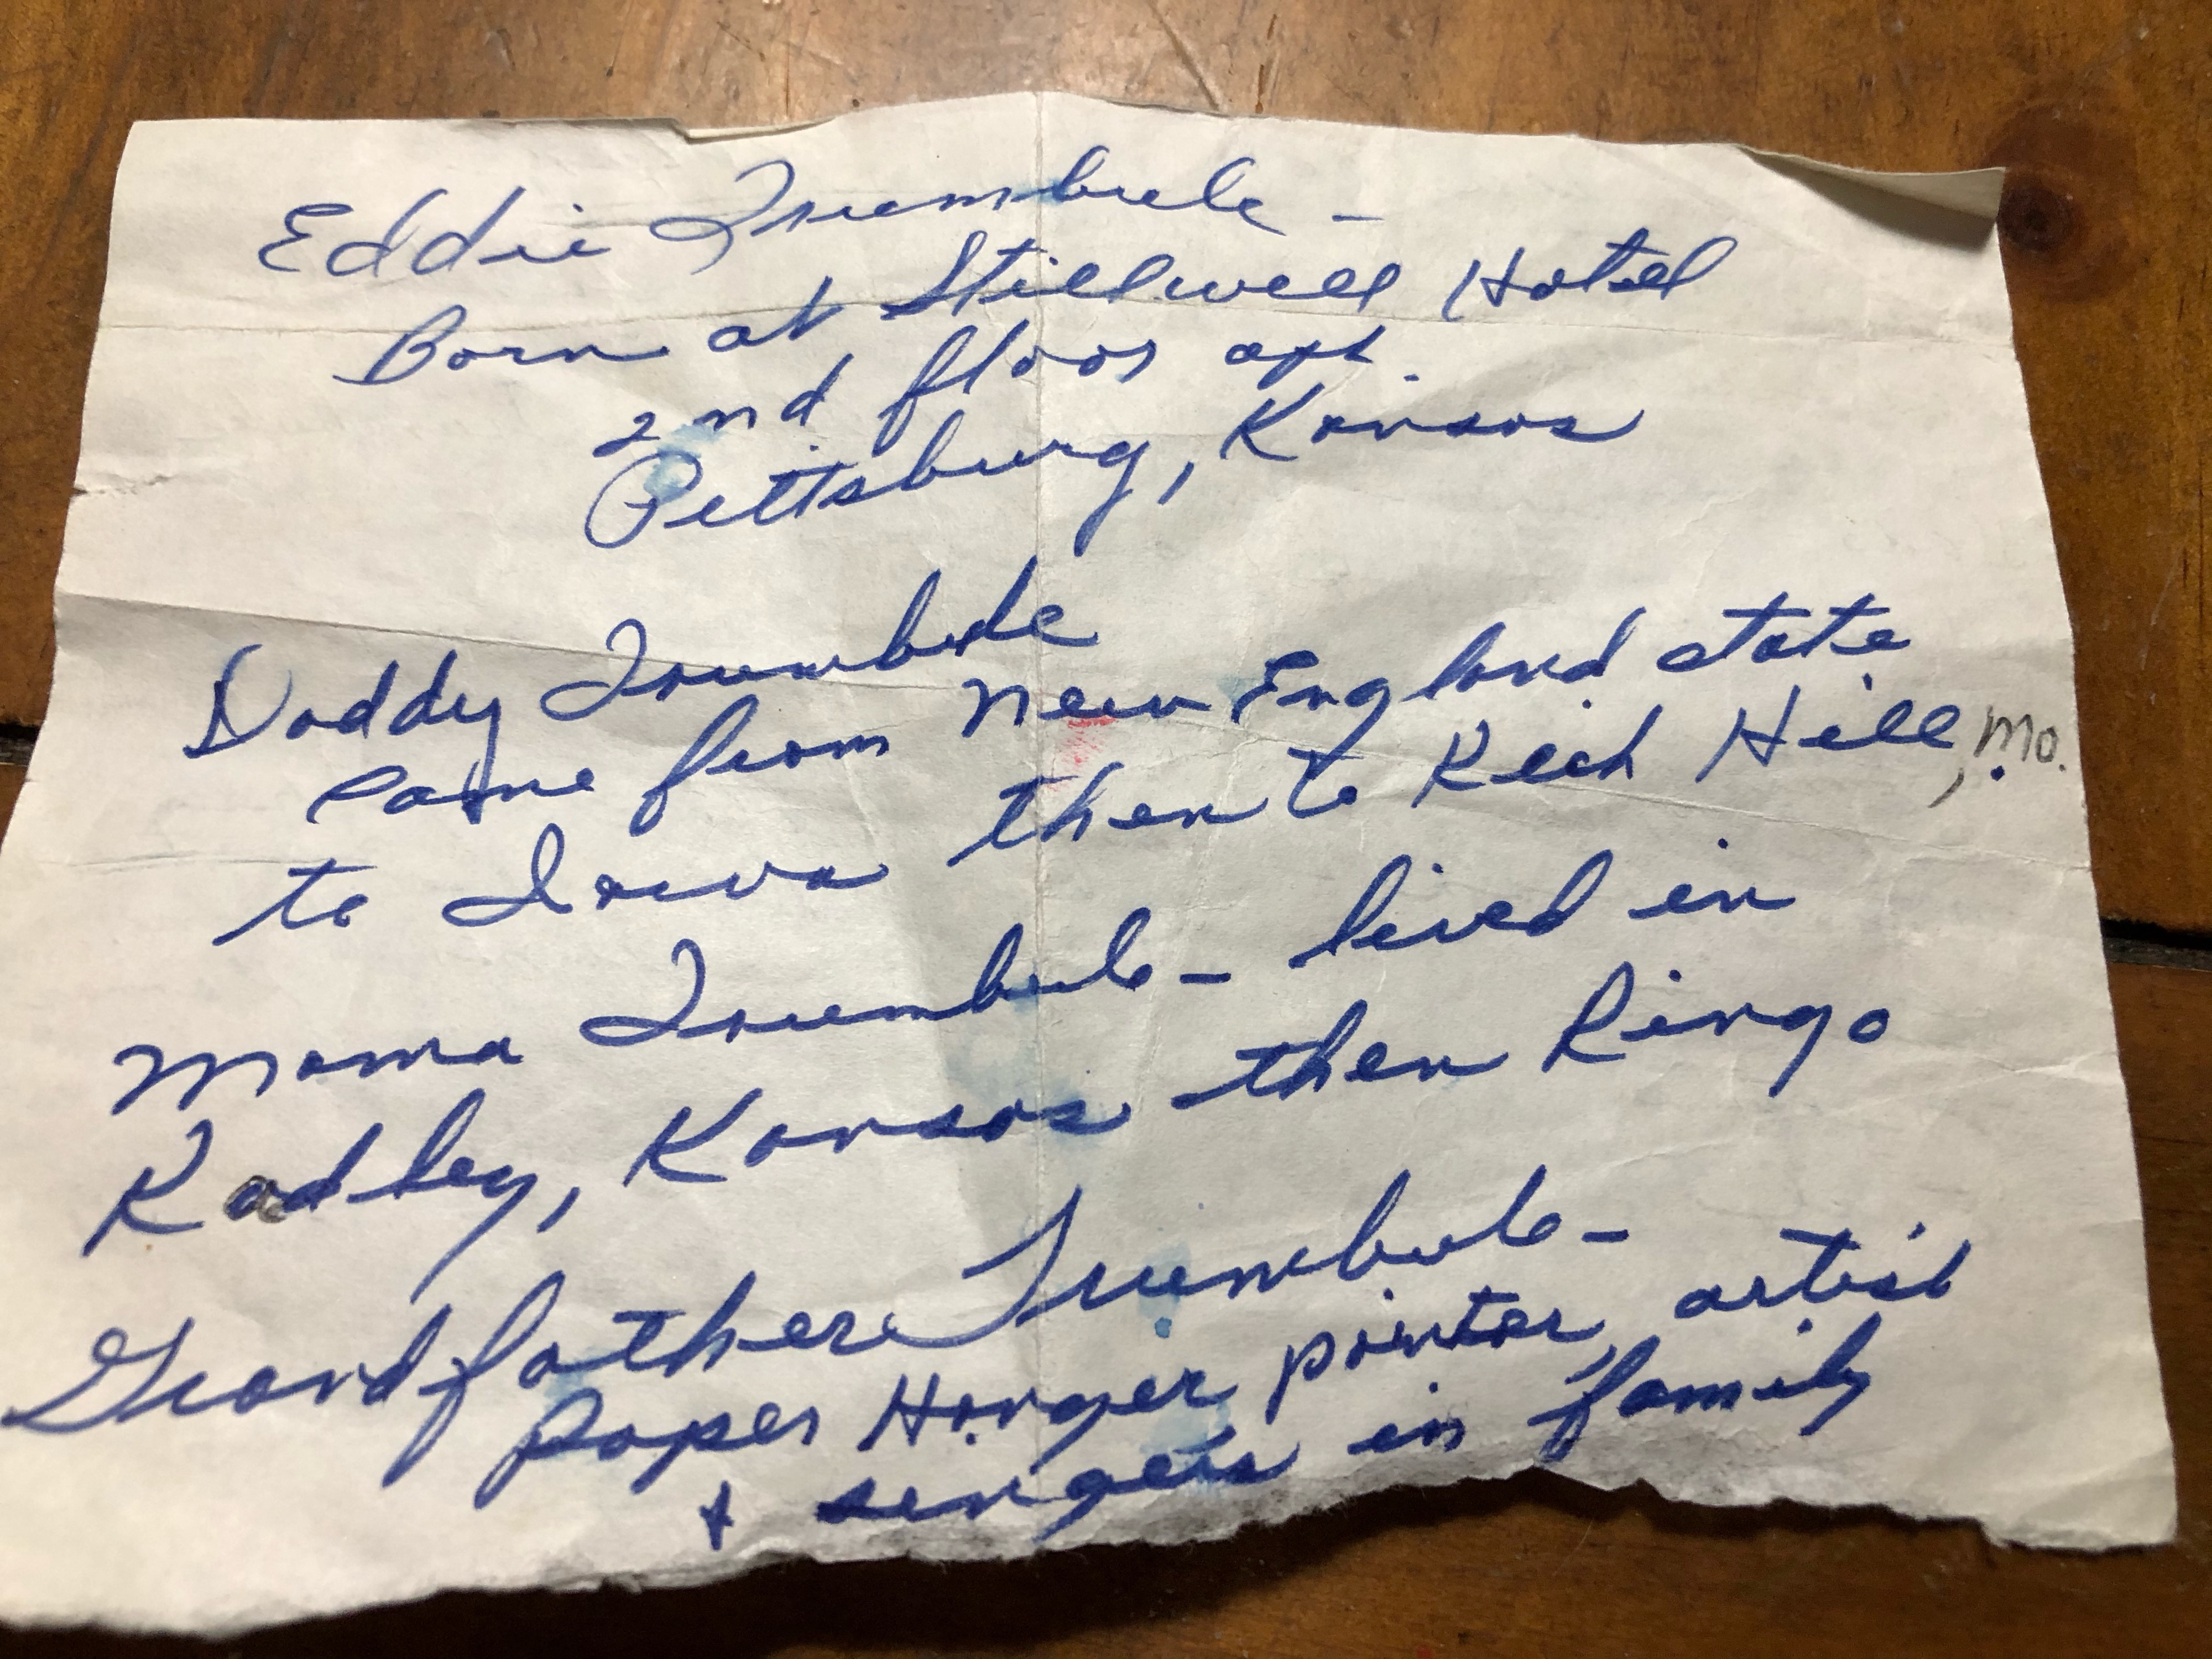 Eddie Trumbule -
Born at Stillwell Hotel
2nd floor apt.
Pittsburg, Kansas
Daddy Trumbule
came from New England state
to Iowa then to Rich Hill, Mo.
Mama Trumbule - lived in
Radley, Kansas then Ringo
Grandfather Trumbule -
Paper Hanger painter, artist
+ singers in family